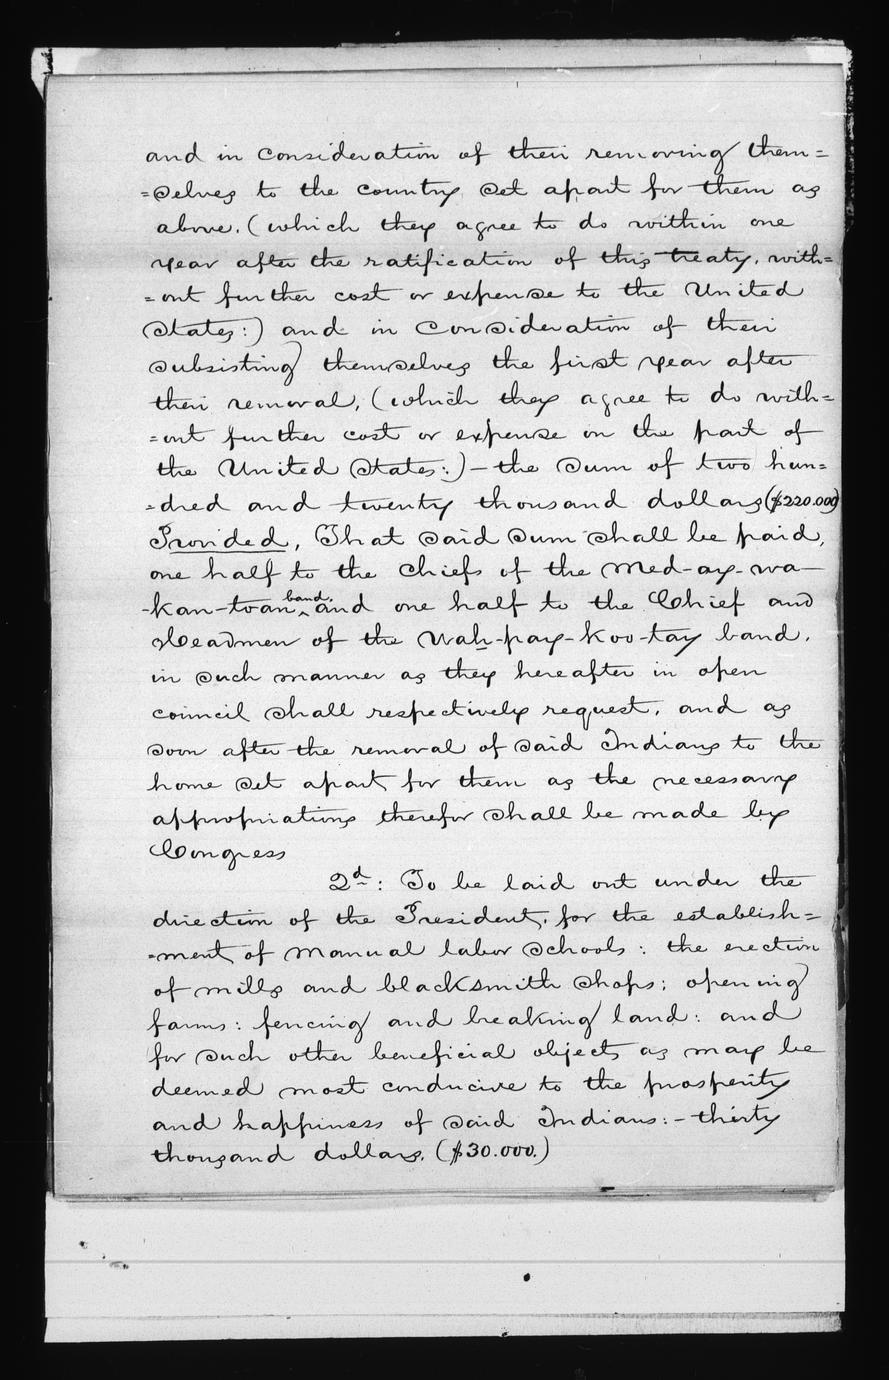 and in consideration of their removing them=
=selves to the country set apart for them as
above, (which they agree to do within one
year after the ratification of this treaty, with=
=out further cost or expense to the United
States:) and in consideration of their
subsisting themselves the first year after
their removal, (which they agree to do with=
=out further cost or expense on the part of
the United States:) - the sum of two hun=
=dred and twenty thousand dollars ($220.000)
Provided, That said sum shall be paid,
one half to the Chiefs of the Med-ay-wa-
-kan-toan band, and one half to the Chief and
Headmen of the Wah-pay-koo-tay band,
in such manner as they hereafter in open
council shall respectively request, and as
soon after the removal of said Indians to the
home set apart for them as the necessary
appropriations therefor shall be made by
Congress
2d: To be laid out under the
direction of the President, for the establish=
=ment of manual labor schools: the erection
of mills and blacksmith shops; opening
farms: fencing and breaking land: and
for such other beneficial objects as may be
deemed most conducive to the prosperity
and happiness of said Indians:- thirty
thousand dollars. ($30.000.)